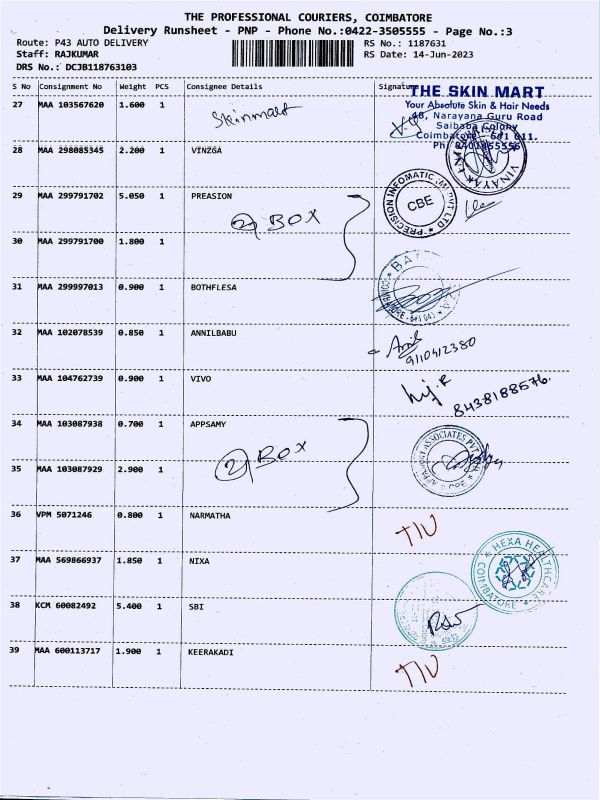 THE PROFESSIONAL COURIERS, COIMBATORE
Delivery Runsheet - PNP - Phone No.:0422-3505555 - Page No.:3
Route: P43 AUTO DELIVERY RS No.: 1187631
Staff: RAJKUMAR RS Date: 14-Jun-2023
DRS No.: DCJB118763103
S No Consignment No Weight PCS Consignee Details Signature
THE SKIN MART
Your Absolute Skin & Hair Needs
48, Narayana Guru Road
Saibaba Colony
Coimbatore - 641 011.
27 MAA 103567620 1.600 1 Skinmart
28 MAA 298085345 2.200 1 VINZGA
VINAYAK
29 MAA 299791702 5.050 1 PREASION
PRECISION INFOMATIC (M) PVT LTD
CBE
2 BOX
30 MAA 299791700 1.800 1
31 MAA 299997013 0.900 1 BOTHFLESA
32 MAA 102078539 0.850 1 ANNILBABU
9110412380
33 MAA 104762739 0.900 1 VIVO
8438188576.
34 MAA 103087938 0.700 1 APPSAMY
2 BOX
35 MAA 103087929 2.900 1
36 VPM 5071246 0.800 1 NARMATHA TIV
37 MAA 569866937 1.850 1 NIXA
HEXA HEALTHCARE
COIMBATORE
38 KCM 60082492 5.400 1 SBI
39 MAA 600113717 1.900 1 KEERAKADI TIV